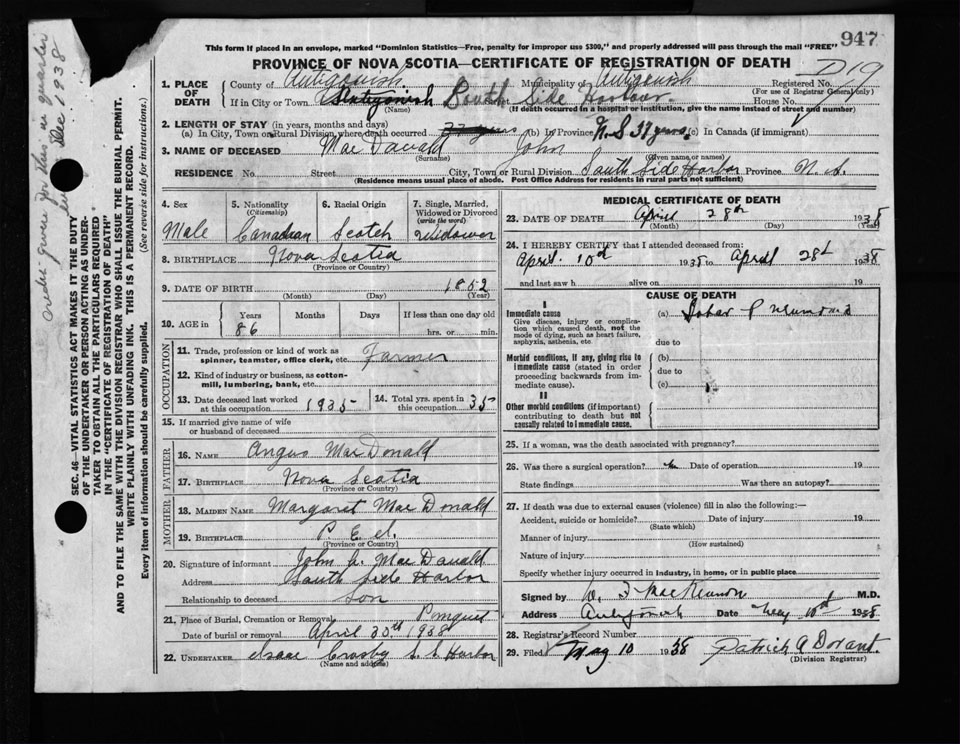 947
This form if placed in an envelope, marked "Dominion Statistics—Free, penalty for improper use $300," and properly addressed will pass through the mail "FREE"
PROVINCE OF NOVA SCOTIA—CERTIFICATE OF REGISTRATION OF DEATH
1. PLACE OF DEATH
County of Antigonish Municipality of Antigonish Registered No. D19
(For use of Registrar General only)
If in City or Town South Side Harbour House No.
(If death occurred in a hospital or institution, give the name instead of street and number)
2. LENGTH OF STAY (in years, months and days)
(a) In City, Town or Rural Division where death occurred 37 years (b) In Province N. S 37 years (c) In Canada (if immigrant)
3. NAME OF DECEASED Mac Donald John
(Surname) (Given name or names)
RESIDENCE No. Street City, Town or Rural Division South Side Harbor Province N. S.
(Residence means usual place of abode. Post Office Address for residents in rural parts not sufficient)
4. Sex Male
5. Nationality (Citizenship) Canadian
6. Racial Origin Scotch
7. Single, Married, Widowed or Divorced (write the word) Widower
8. BIRTHPLACE Nova Scotia
(Province or Country)
9. DATE OF BIRTH 1852
(Month) (Day) (Year)
10. AGE in Years Months Days If less than one day old
86 hrs. or min.
OCCUPATION
11. Trade, profession or kind of work as spinner, teamster, office clerk, etc. Farmer
12. Kind of industry or business, as cotton-mill, lumbering, bank, etc.
13. Date deceased last worked at this occupation 1935
14. Total yrs. spent in this occupation 35
15. If married give name of wife or husband of deceased
FATHER
16. NAME Angus Mac Donald
17. BIRTHPLACE Nova Scotia
(Province or Country)
MOTHER
18. MAIDEN NAME Margaret Mac Donald
19. BIRTHPLACE P. E. I.
(Province or Country)
20. Signature of informant John A. Mac Donald
Address South Side Harbor
Relationship to deceased Son
21. Place of Burial, Cremation or Removal Pomquet
Date of burial or removal April 30th 1938
22. UNDERTAKER Isaac Crosby S. S. Harbor
(Name and address)
MEDICAL CERTIFICATE OF DEATH
23. DATE OF DEATH April 28th 1938
(Month) (Day) (Year)
24. I HEREBY CERTIFY that I attended deceased from:
April 10th 1938 to April 28th 1938
and last saw h alive on 19
CAUSE OF DEATH
I
Immediate cause
Give disease, injury or complication which caused death, not the mode of dying, such as heart failure, asphyxia, asthenia, etc.
(a) Lobar Pneumonia
due to
Morbid conditions, if any, giving rise to immediate cause (stated in order proceeding backwards from immediate cause).
(b)
due to
(c)
II
Other morbid conditions (if important) contributing to death but not causally related to immediate cause.
25. If a woman, was the death associated with pregnancy?
26. Was there a surgical operation? Date of operation 19
State findings Was there an autopsy?
27. If death was due to external causes (violence) fill in also the following:—
Accident, suicide or homicide? Date of injury 19
(State which)
Manner of injury
(How sustained)
Nature of injury
Specify whether injury occurred in industry, in home, or in public place
Signed by W. F MacKinnon M.D.
Address Antigonish Date May 10th 1938
28. Registrar's Record Number
29. Filed May 10 1938 Patrick A Dorant.
(Division Registrar)
SEC. 46—VITAL STATISTICS ACT MAKES IT THE DUTY
OF THE UNDERTAKER OR PERSON ACTING AS UNDER-
TAKER TO OBTAIN ALL THE PARTICULARS REQUIRED
IN THE "CERTIFICATE OF REGISTRATION OF DEATH"
AND TO FILE THE SAME WITH THE DIVISION REGISTRAR WHO SHALL ISSUE THE BURIAL PERMIT.
WRITE PLAINLY WITH UNFADING INK. THIS IS A PERMANENT RECORD.
Every item of information should be carefully supplied. (See reverse side for instructions.)
credit given for this in quarter
Dec 1938